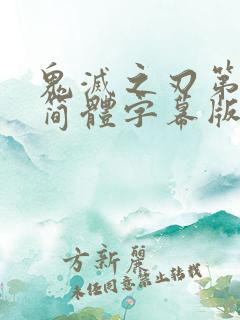 鬼滅之刃第
简體字幕版
方新麗
未任同意禁止转载